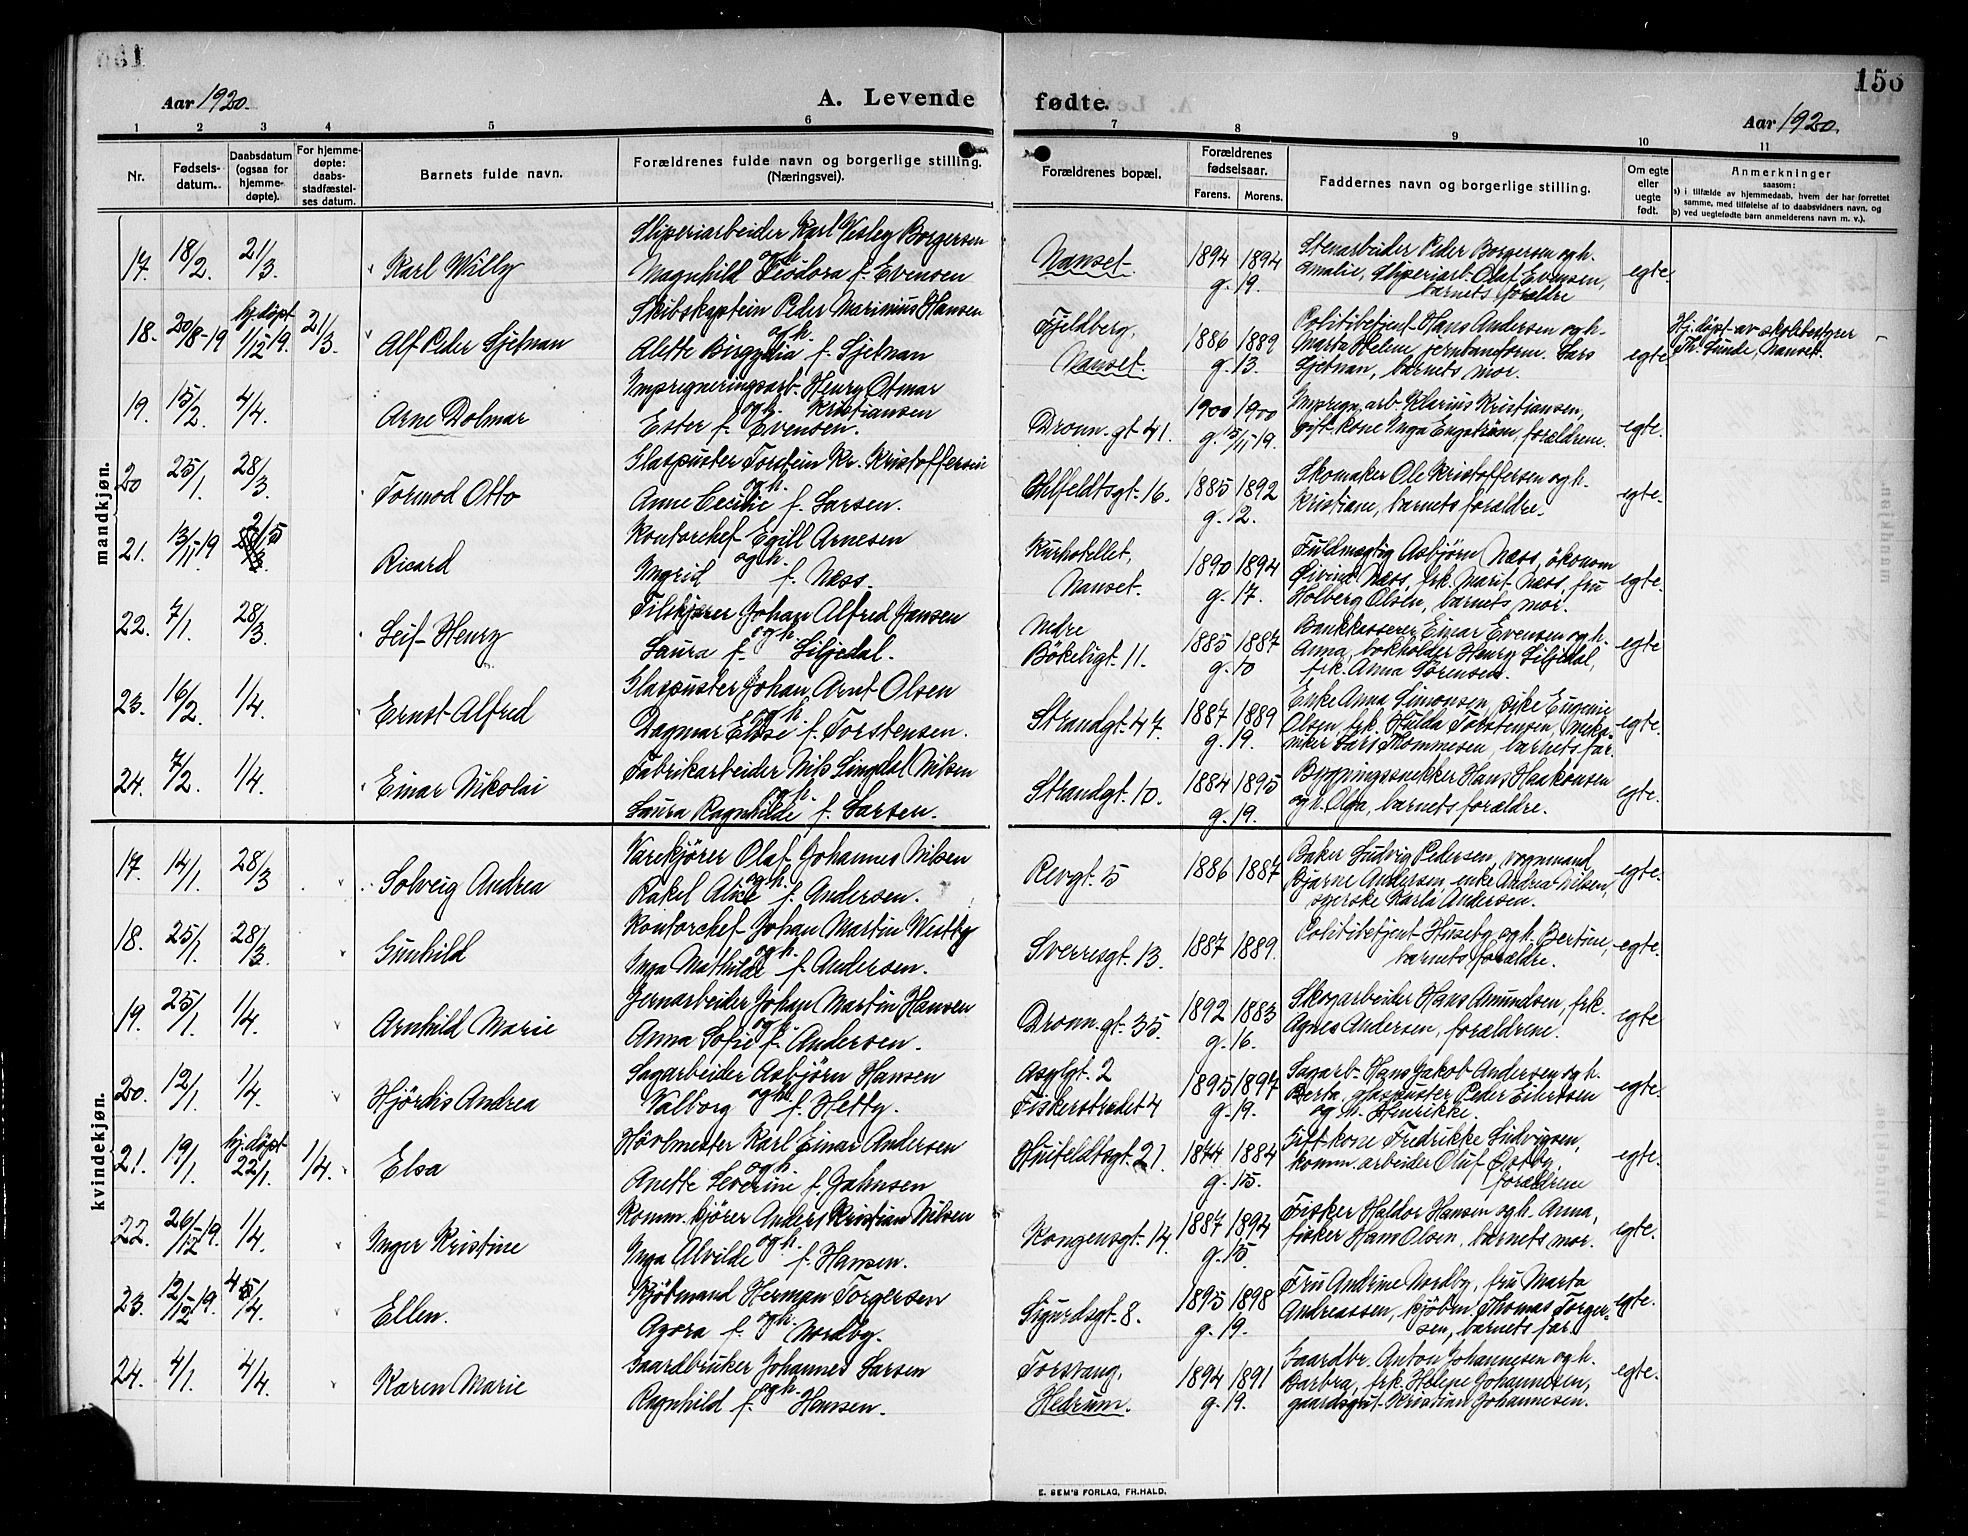 Aar 1920.
A. Levende
fødte.
156
Aar 1920.
1 2 3 4 5 6 7 8 9 10 11
Nr.
Fødsels-
datum.
Daabsdatum
(ogsaa for
hjemme-
døpte).
For hjemme-
døpte:
daabs-
stadfæstel-
ses datum.
Barnets fulde navn.
Forældrenes fulde navn og borgerlige stilling.
(Næringsvei).
Forældrenes bopæl.
Forældrenes
fødselsaar.
Farens. Morens.
Faddernes navn og borgerlige stilling.
Om egte
eller
uegte
født.
Anmerkninger
saasom:
a) i tilfælde av hjemmedaab, hvem der har forrettet
samme, med tilføielse af to daabsvidners navn, og
b) ved uegtefødte barn anmelderens navn m. v.).
mandkjøn.
Sliperiarbeider Karl Wesley Borgersen
17. 18/2. 21/3. Karl Willy og h.
Magnhild Teodora f. Evensen
Nanset. 1894 1894 g. 19.
Stenarbeider Peder Borgersen og h.
Amalie, Sliperiarb. Olaf Evensen,
barnets forældre
egte.
Skibskaptein Peder Marinius Hansen
18. 20/8-19 hj.døpt 1/12 19. 21/3. Alf Peder Sjetnan og h.
Alette Birgyta f. Sjetnan
Fjeldberg,
Nanset. 1886 1889 g. 13.
Politibetjent Hans Andersen og h.
Marta Helene, jernbaneform. Lars
Sjetnan, barnets mor.
egte
Hj. døpt av skolebestyrer
Th. Sunde, Nanset.
Impregneringsarb. Henry Otmar
19. 15/2. 4/4. Arne Dolmar og h. Kristiansen
Ester f. Evensen.
Dronn. gt 41. 1900 1900 g. 15/11 19.
Impregn. arb. Klarius Kristiansen,
gift kone Inga Engström, forældrene.
egte.
Glaspuster Torstein Kr. Kristoffersen
20 25/1. 28/3. Tormod Otto og h.
Anne Cecilie f. Larsen.
Ehlfeldtsgt. 16. 1885 1892 g. 12.
Skomaker Ole Kristoffersen og h.
Kristiane, barnets forældre.
egte.
Kontorchef Egill Arnesen
21. 13/11-19 2/5 Ricard og h.
Ingrid f. Næss.
Kurhotellet,
Nanset. 1890 1894 g. 17.
Fuldmægtig Asbjørn Næss, økonom
Øivind Næss, frk. Marit Næss, fru
Holberg Olsen, barnets mor.
egte.
Tilskjærer Johan Alfred Jansen
22. 7/1. 28/3. Leif Henry og h.
Laura f. Liljedal.
Nedre
Bökeligt. 11. 1885 1887 g. 10
Bankkasserer Einar Evensen og h.
Anna, bokholder Henry Liljedal,
frk. Anna Sørensen.
egte
Glaspuster Johan Arnt Olsen
23. 16/2. 1/4. Ernst Alfred og h.
Dagmar Elise f. Torstensen.
Strandgt. 47. 1887 1889 g. 19.
Enke Anna Simonsen, pike Eugenie
Olsen, frk. Hulda Torstensen, meka-
niker Lars Thommesen, barnets far.
egte.
Fabrikarbeider Nils Lingdal Nilsen
24. 7/2. 1/4. Einar Nikolai og h.
Laura Ragnhilde f. Larsen.
Strandgt. 10. 1884 1895 g. 19.
Bygningssnekker Hans Haakonsen
og h. Olga, barnets forældre.
egte.
kvindekjøn.
Varekjører Olaf Johannes Nilsen
17. 14/1. 28/3 Solveig Andrea og h.
Rakel Alice f. Andersen.
Revgt. 5 1886 1887
Baker Ludvig Pedersen, vognmand
Bjarne Andersen, enke Andrea Nilsen,
syerske Karla Andersen.
egte.
Kontorchef Johan Martin Westby
18. 25/1. 28/3. Gunhild og h.
Inga Mathilde f. Andersen.
Sverresgt. 13. 1887 1889.
Politibetjent Huseby og h. Bertine,
barnets forældre.
egte.
Jernarbeider Johan Martin Hansen
19. 25/1. 1/4. Arnhild Marie og h.
Anna Sofie f. Andersen.
Dronn. gt. 35. 1892 1883 g. 16.
Skogarbeider Hans Amundsen, frk.
Agnes Andersen, forældrene.
egte
Sagarbeider Asbjörn Hansen
20. 12/1. 1/4. Hjördis Andrea og h.
Valborg f. Hetty.
Asylgt. 2
Fiskerstredet 4 1895 1897 g. 19.
Sagarb. Hans Jakob Andersen og h.
Berta, glaspuster Peder Eilertsen
og h. Henrikke.
egte.
Hövlmester Karl Einar Andersen
21. 19/1. hj.døpt 22/1. 1/4. Elsa og h.
Anette Severine f. Jahnsen
Huitfeldtsgt. 21. 1844 1884 g. 15.
Gift kone Fredrikke Ludvigsen,
komm. arbeider Oluf Östby,
forældrene
egte.
Komm. kjörer Anders Kristian Nilsen
22. 26/12-19. 1/4. Inger Kristine og h.
Inga Alvilde f. Hansen.
Kongensgt. 14. 1887 1894 g. 15.
Fisker Haldor Hansen og h. Anna,
fisker Hans Olsen, barnets mor.
egte.
Kjöbmand Herman Torgersen
23. 12/12-19. 4 5/4. Ellen. og h.
Agora f. Nordby.
Sigurdsgt. 8. 1895 1898 g. 19.
Fru Andrine Nordby, fru Marta
Andreassen, kjöbm. Thomas Torger-
sen, barnets far.
egte.
Gaardbruker Johannes Larsen
24. 4/1. 4/4. Karen Marie og h.
Ragnhild f. Hansen.
Torsvang,
Hedrum. 1894 1891 g. 19.
Gaardbr. Anton Johannesen og h.
Barbra, frk. Helene Johannesen,
gaardsgut Kristian Johannesen.
egte.
E. SEM'S FORLAG, FR.HALD.